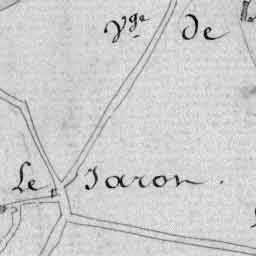 Vge De
Le Jaron.